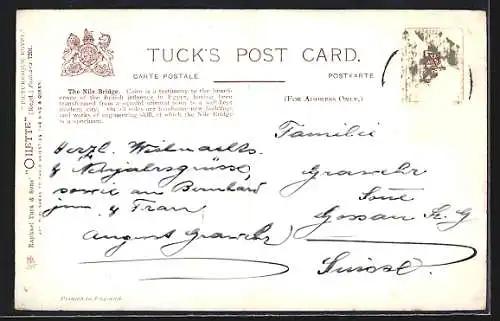 TUCK'S POST CARD.
CARTE POSTALE
POSTKARTE
(FOR ADDRESS ONLY.)
The Nile Bridge. Cairo is a testimony to the beneficence of the British influence in Egypt, having been
transformed from a squalid oriental town to a well kept
modern city. On all sides are handsome new buildings
and works of engineering skill, of which the Nile Bridge
is a specimen.
Herzl. Weihnachts
& Neujahrsgrüsse,
sowie an Bernhard
jun. & Frau
August Grawehr
Familie
Grawehr
Gossau St. G
Suisse.
Raphael Tuck & Sons' "OILETTE"
Printed in England.